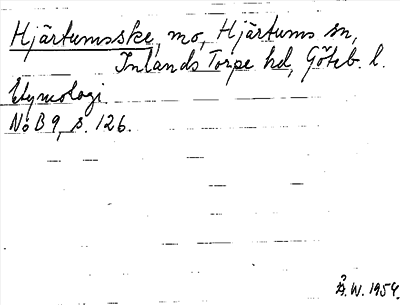 Hjärtumsske, mo, Hjärtums sn,
Inlands Torpe hd, Göteb. l.
Etymologi
NoB 9, s. 126.
Å.W. 1954.